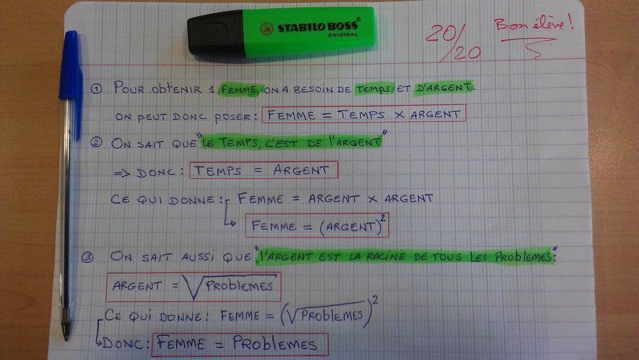 STABILO BOSS
ORIGINAL
20/20
Bon élève!
① POUR OBTENIR 1 FEMME, ON A BESOIN DE TEMPS ET D'ARGENT.
ON PEUT DONC POSER: FEMME = TEMPS × ARGENT
② ON SAIT QUE "LE TEMPS, C'EST DE L'ARGENT"
⇒ DONC: TEMPS = ARGENT
CE QUI DONNE: FEMME = ARGENT × ARGENT
↳ FEMME = (ARGENT)²
③ ON SAIT AUSSI QUE "L'ARGENT EST LA RACINE DE TOUS LES PROBLEMES":
ARGENT = √PROBLEMES
CE QUI DONNE: FEMME = (√PROBLEMES)²
DONC: FEMME = PROBLEMES